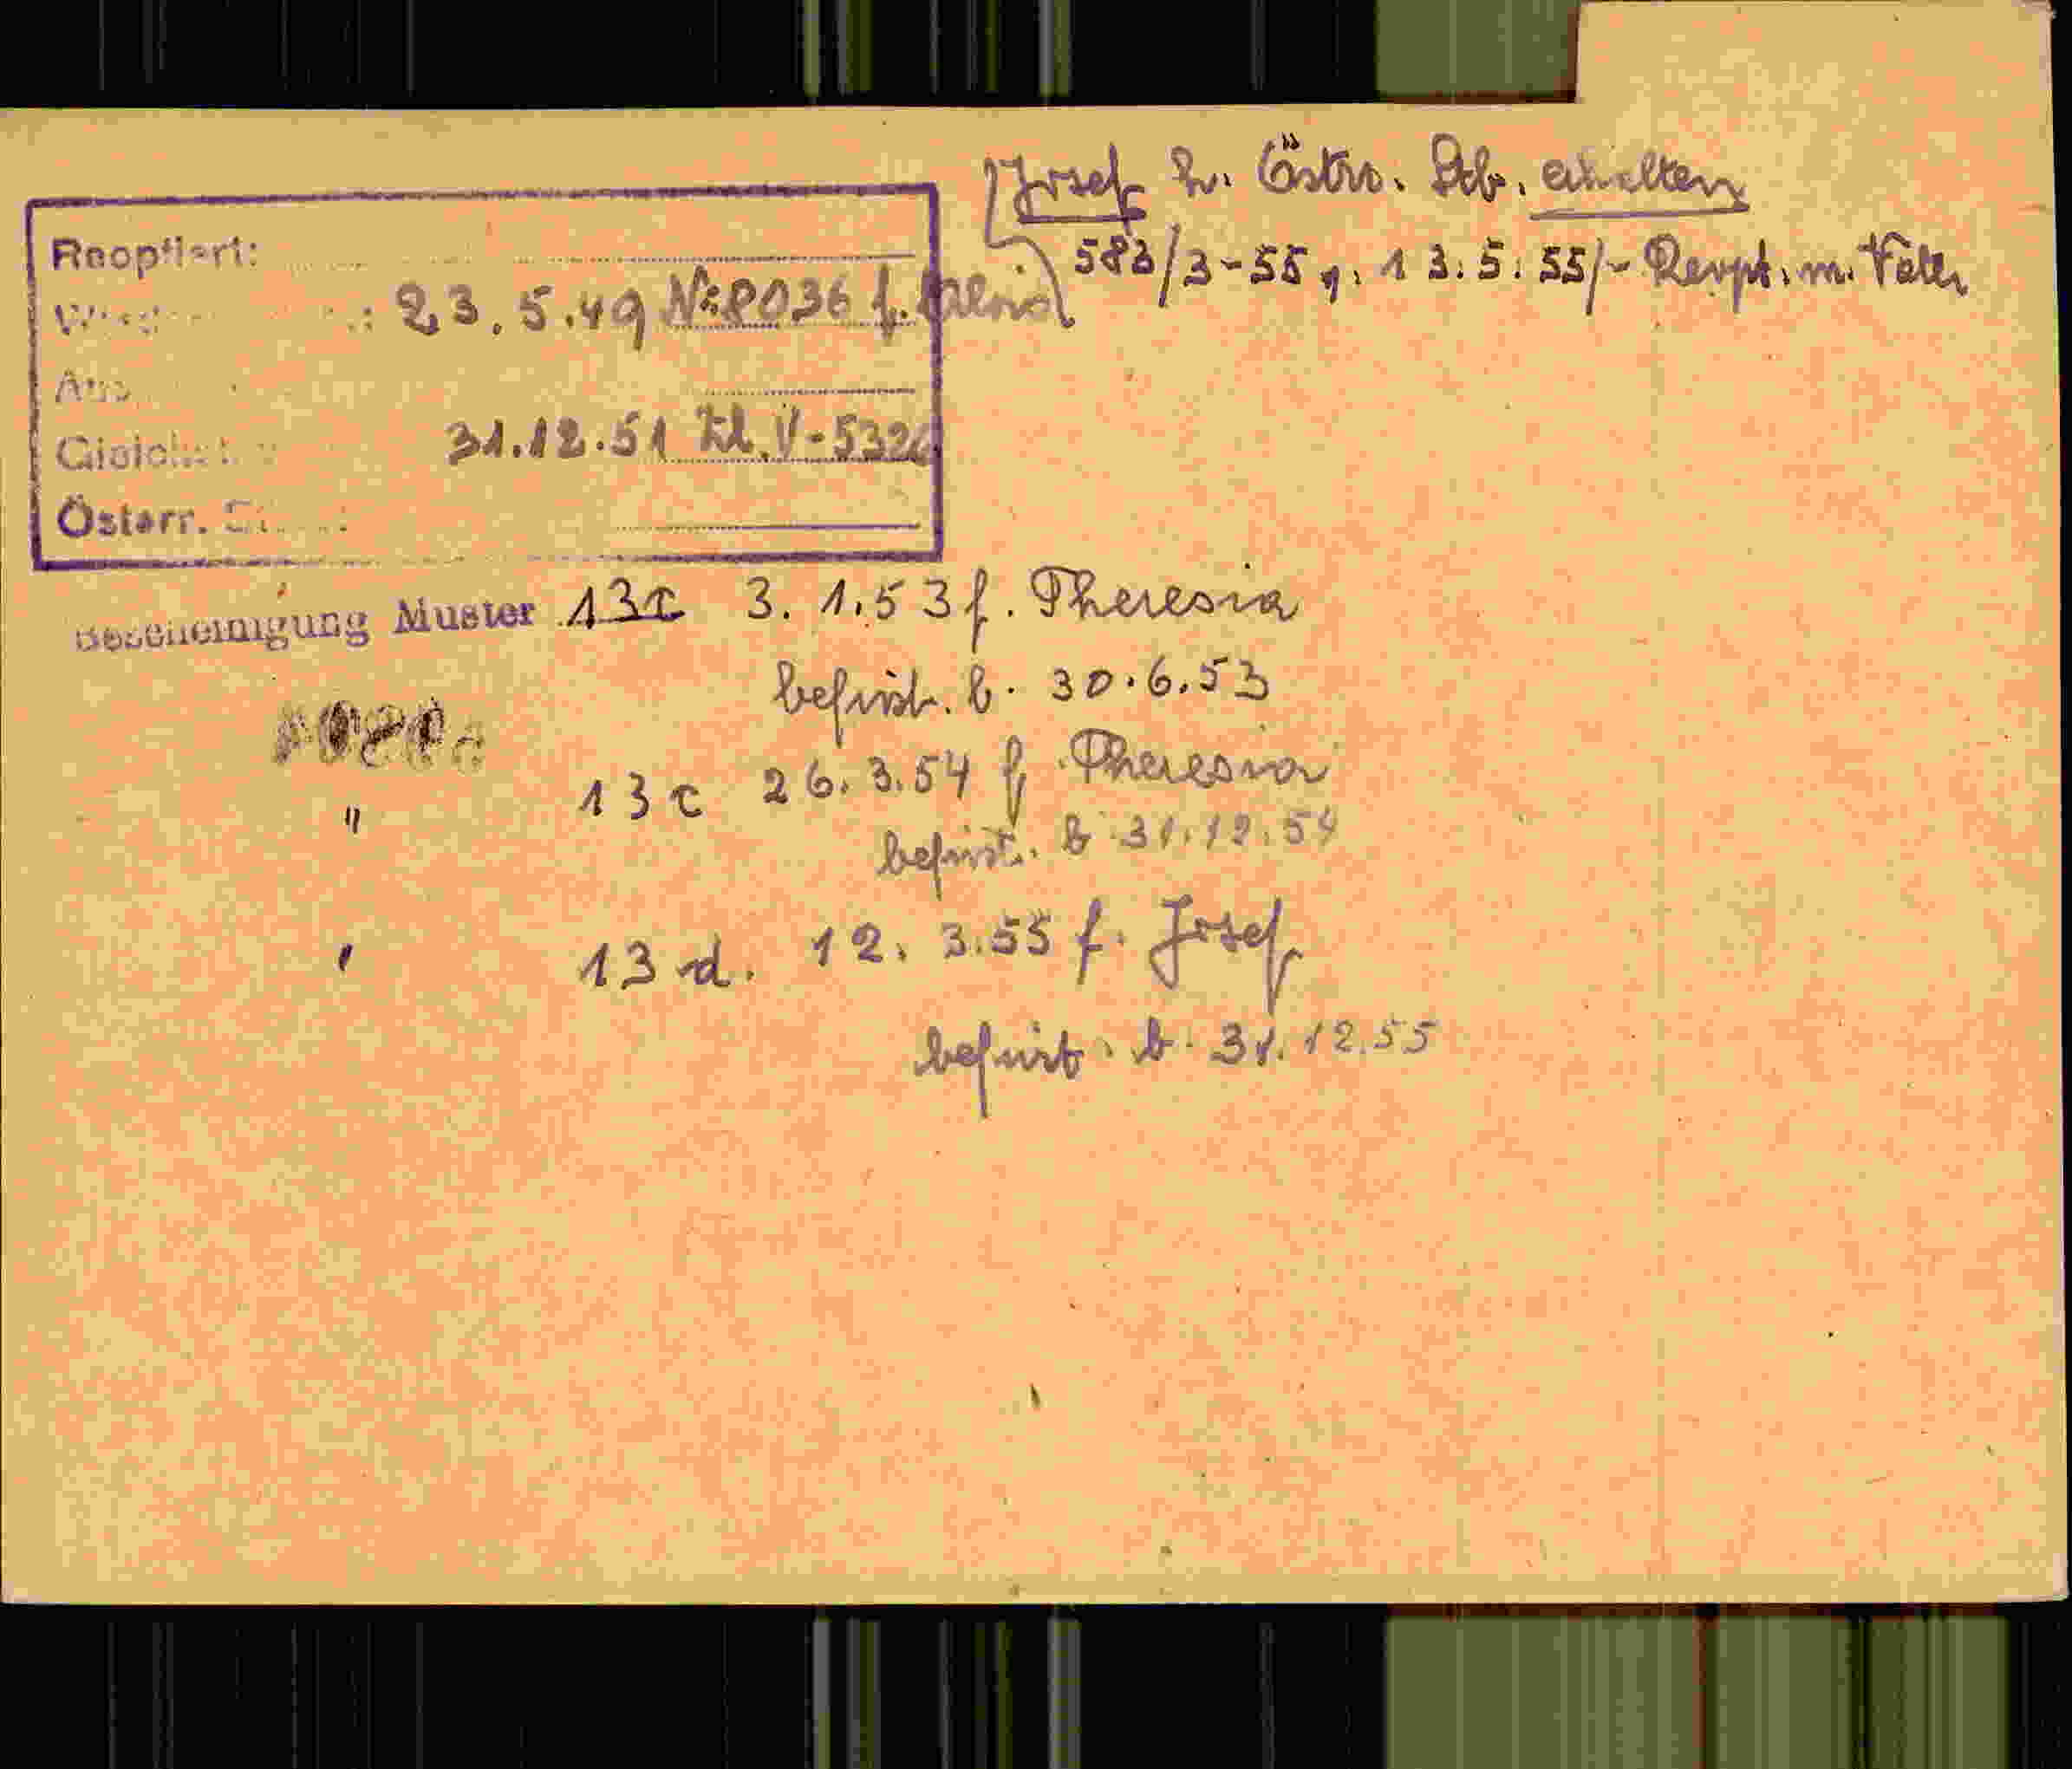 Josef h. Östr. Stb. erhalten
583/3-55 v. 13.5.55/- Reopt. m. Vater
Reoptiert:
23.5.49 Nr 8036 f. Alois
31.12.51 Zl. V-5326
Österr.
Bescheinigung Muster 13c 3.1.53 f. Theresia
befrist. b. 30.6.53
" 13c 26.3.54 f. Theresia
befrist. b. 31.12.54
' 13 d. 12. 3.55 f. Josef
befrist. b. 31.12.55